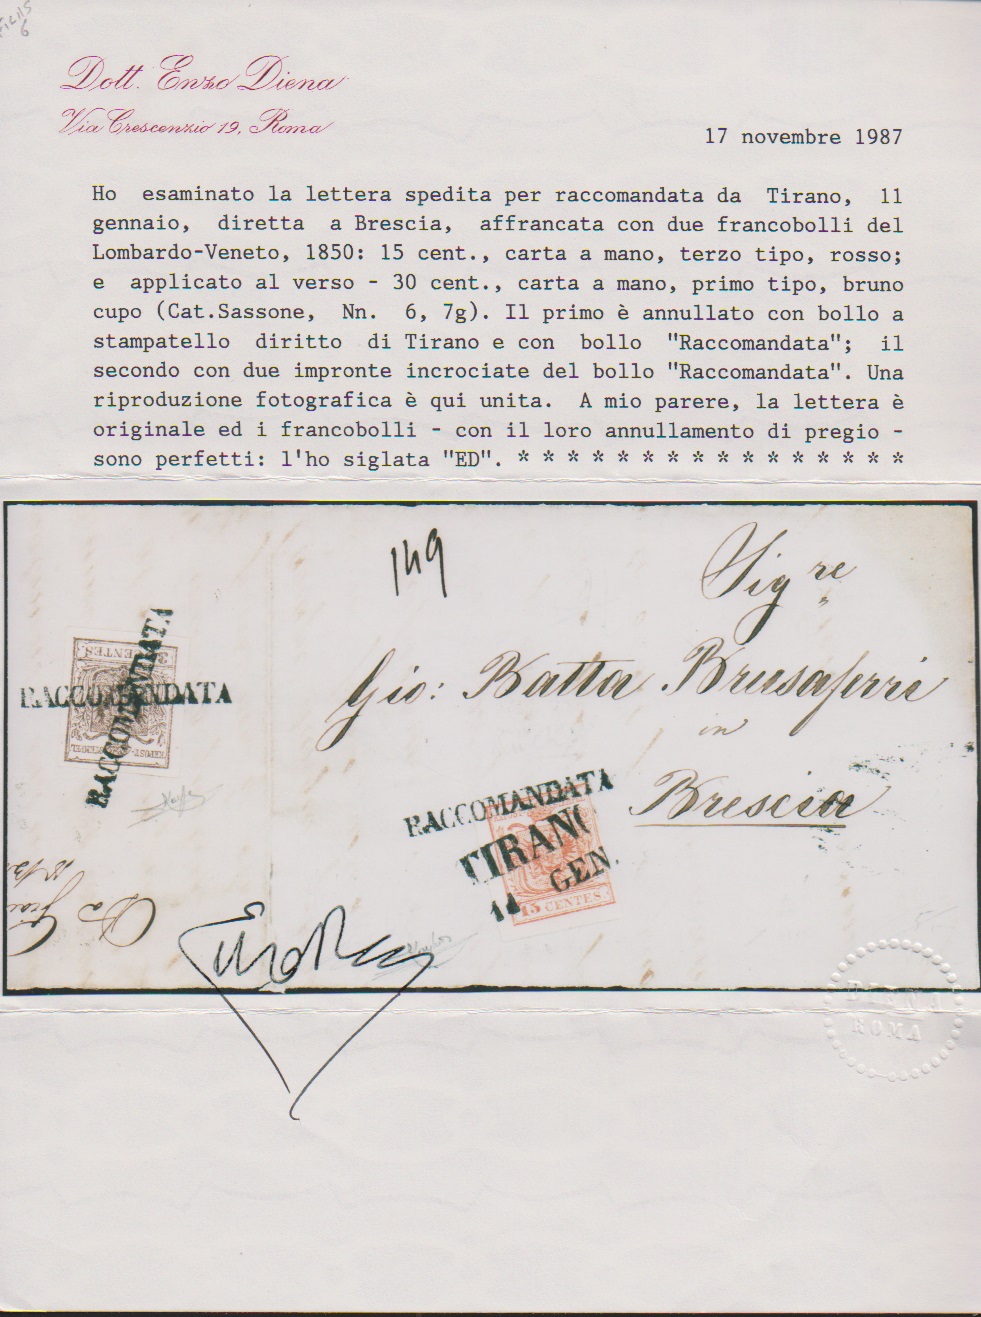 6
Dott. Enzo Diena
Via Crescenzio 19, Roma
17 novembre 1987
Ho esaminato la lettera spedita per raccomandata da Tirano, 11
gennaio, diretta a Brescia, affrancata con due francobolli del
Lombardo-Veneto, 1850: 15 cent., carta a mano, terzo tipo, rosso;
e applicato al verso - 30 cent., carta a mano, primo tipo, bruno
cupo (Cat.Sassone, Nn. 6, 7g). Il primo è annullato con bollo a
stampatello diritto di Tirano e con bollo "Raccomandata"; il
secondo con due impronte incrociate del bollo "Raccomandata". Una
riproduzione fotografica è qui unita. A mio parere, la lettera è
originale ed i francobolli - con il loro annullamento di pregio -
sono perfetti: l'ho siglata "ED". * * * * * * * * * * * * * * * *
149
Sigre
Gio: Batta Brusaferri
in
Brescia
RACCOMANDATA
RACCOMANDATA
RACCOMANDATA
TIRANO
11 GEN.
15 CENTES
DIENA
ROMA